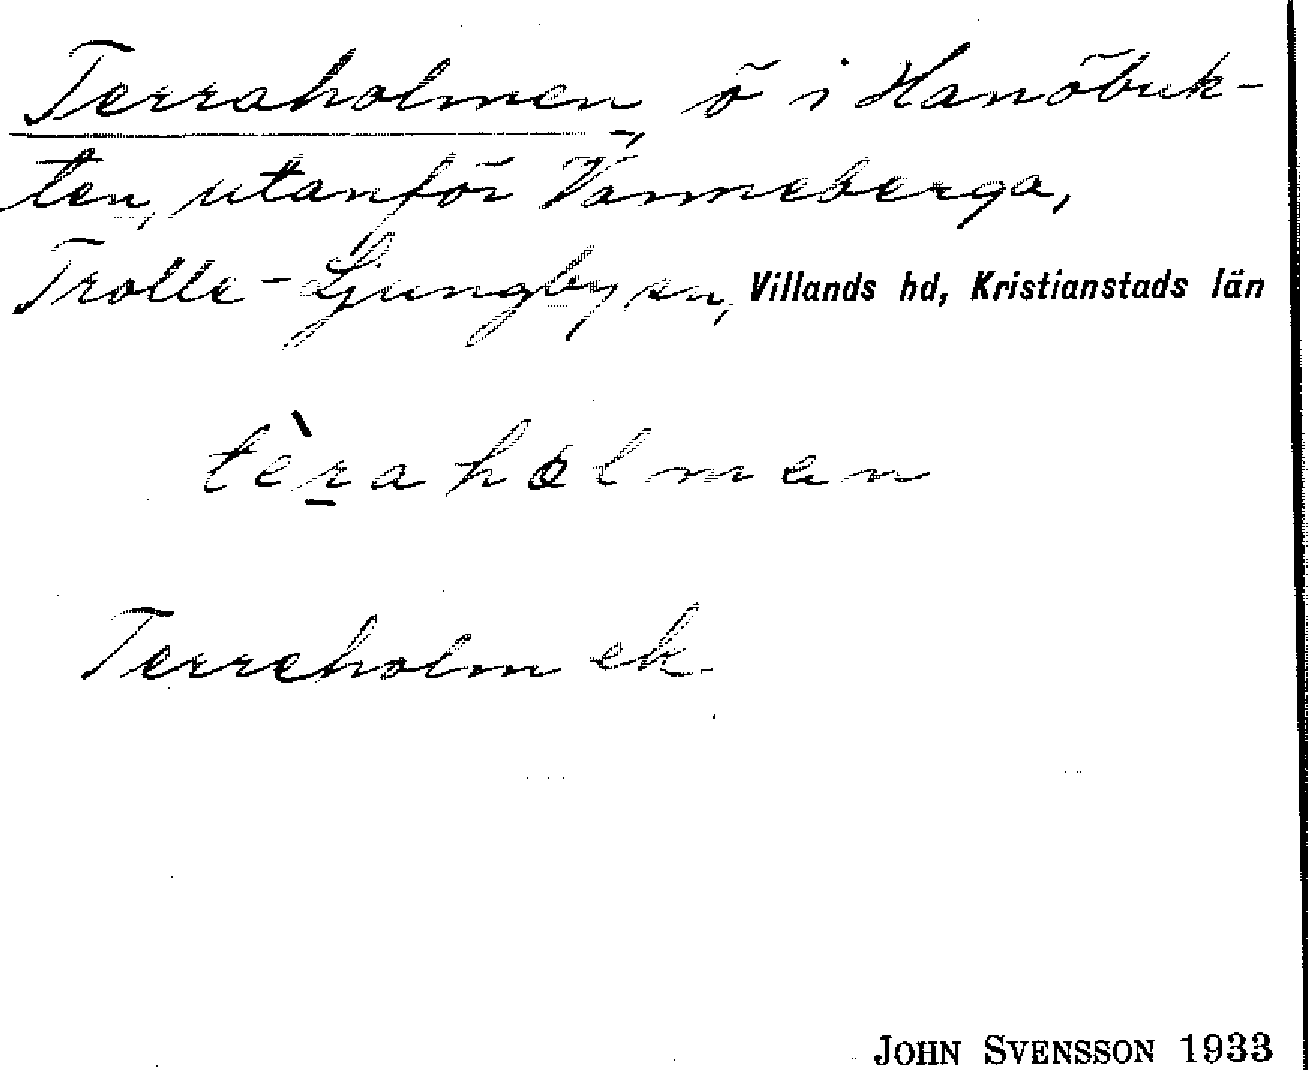 Terraholmen, ö i Hanöbuk-
ten, utanför Vanneberga,
Trolle-Ljungby sn, Villands hd, Kristianstads län
tèṟahɷlmen
Terreholm ek.
JOHN SVENSSON 1933